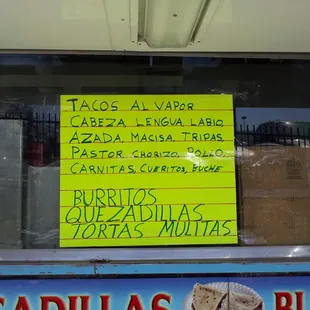 TACOS AL VAPOR
CABEZA LENGUA LABIO,
AZADA, MACISA, TRIPAS
PASTOR, CHORIZO, POLLO,
CARNITAS, CUERITOS, BUCHE
BURRITOS
QUEZADILLAS
TORTAS MULITAS
SADILLAS BU